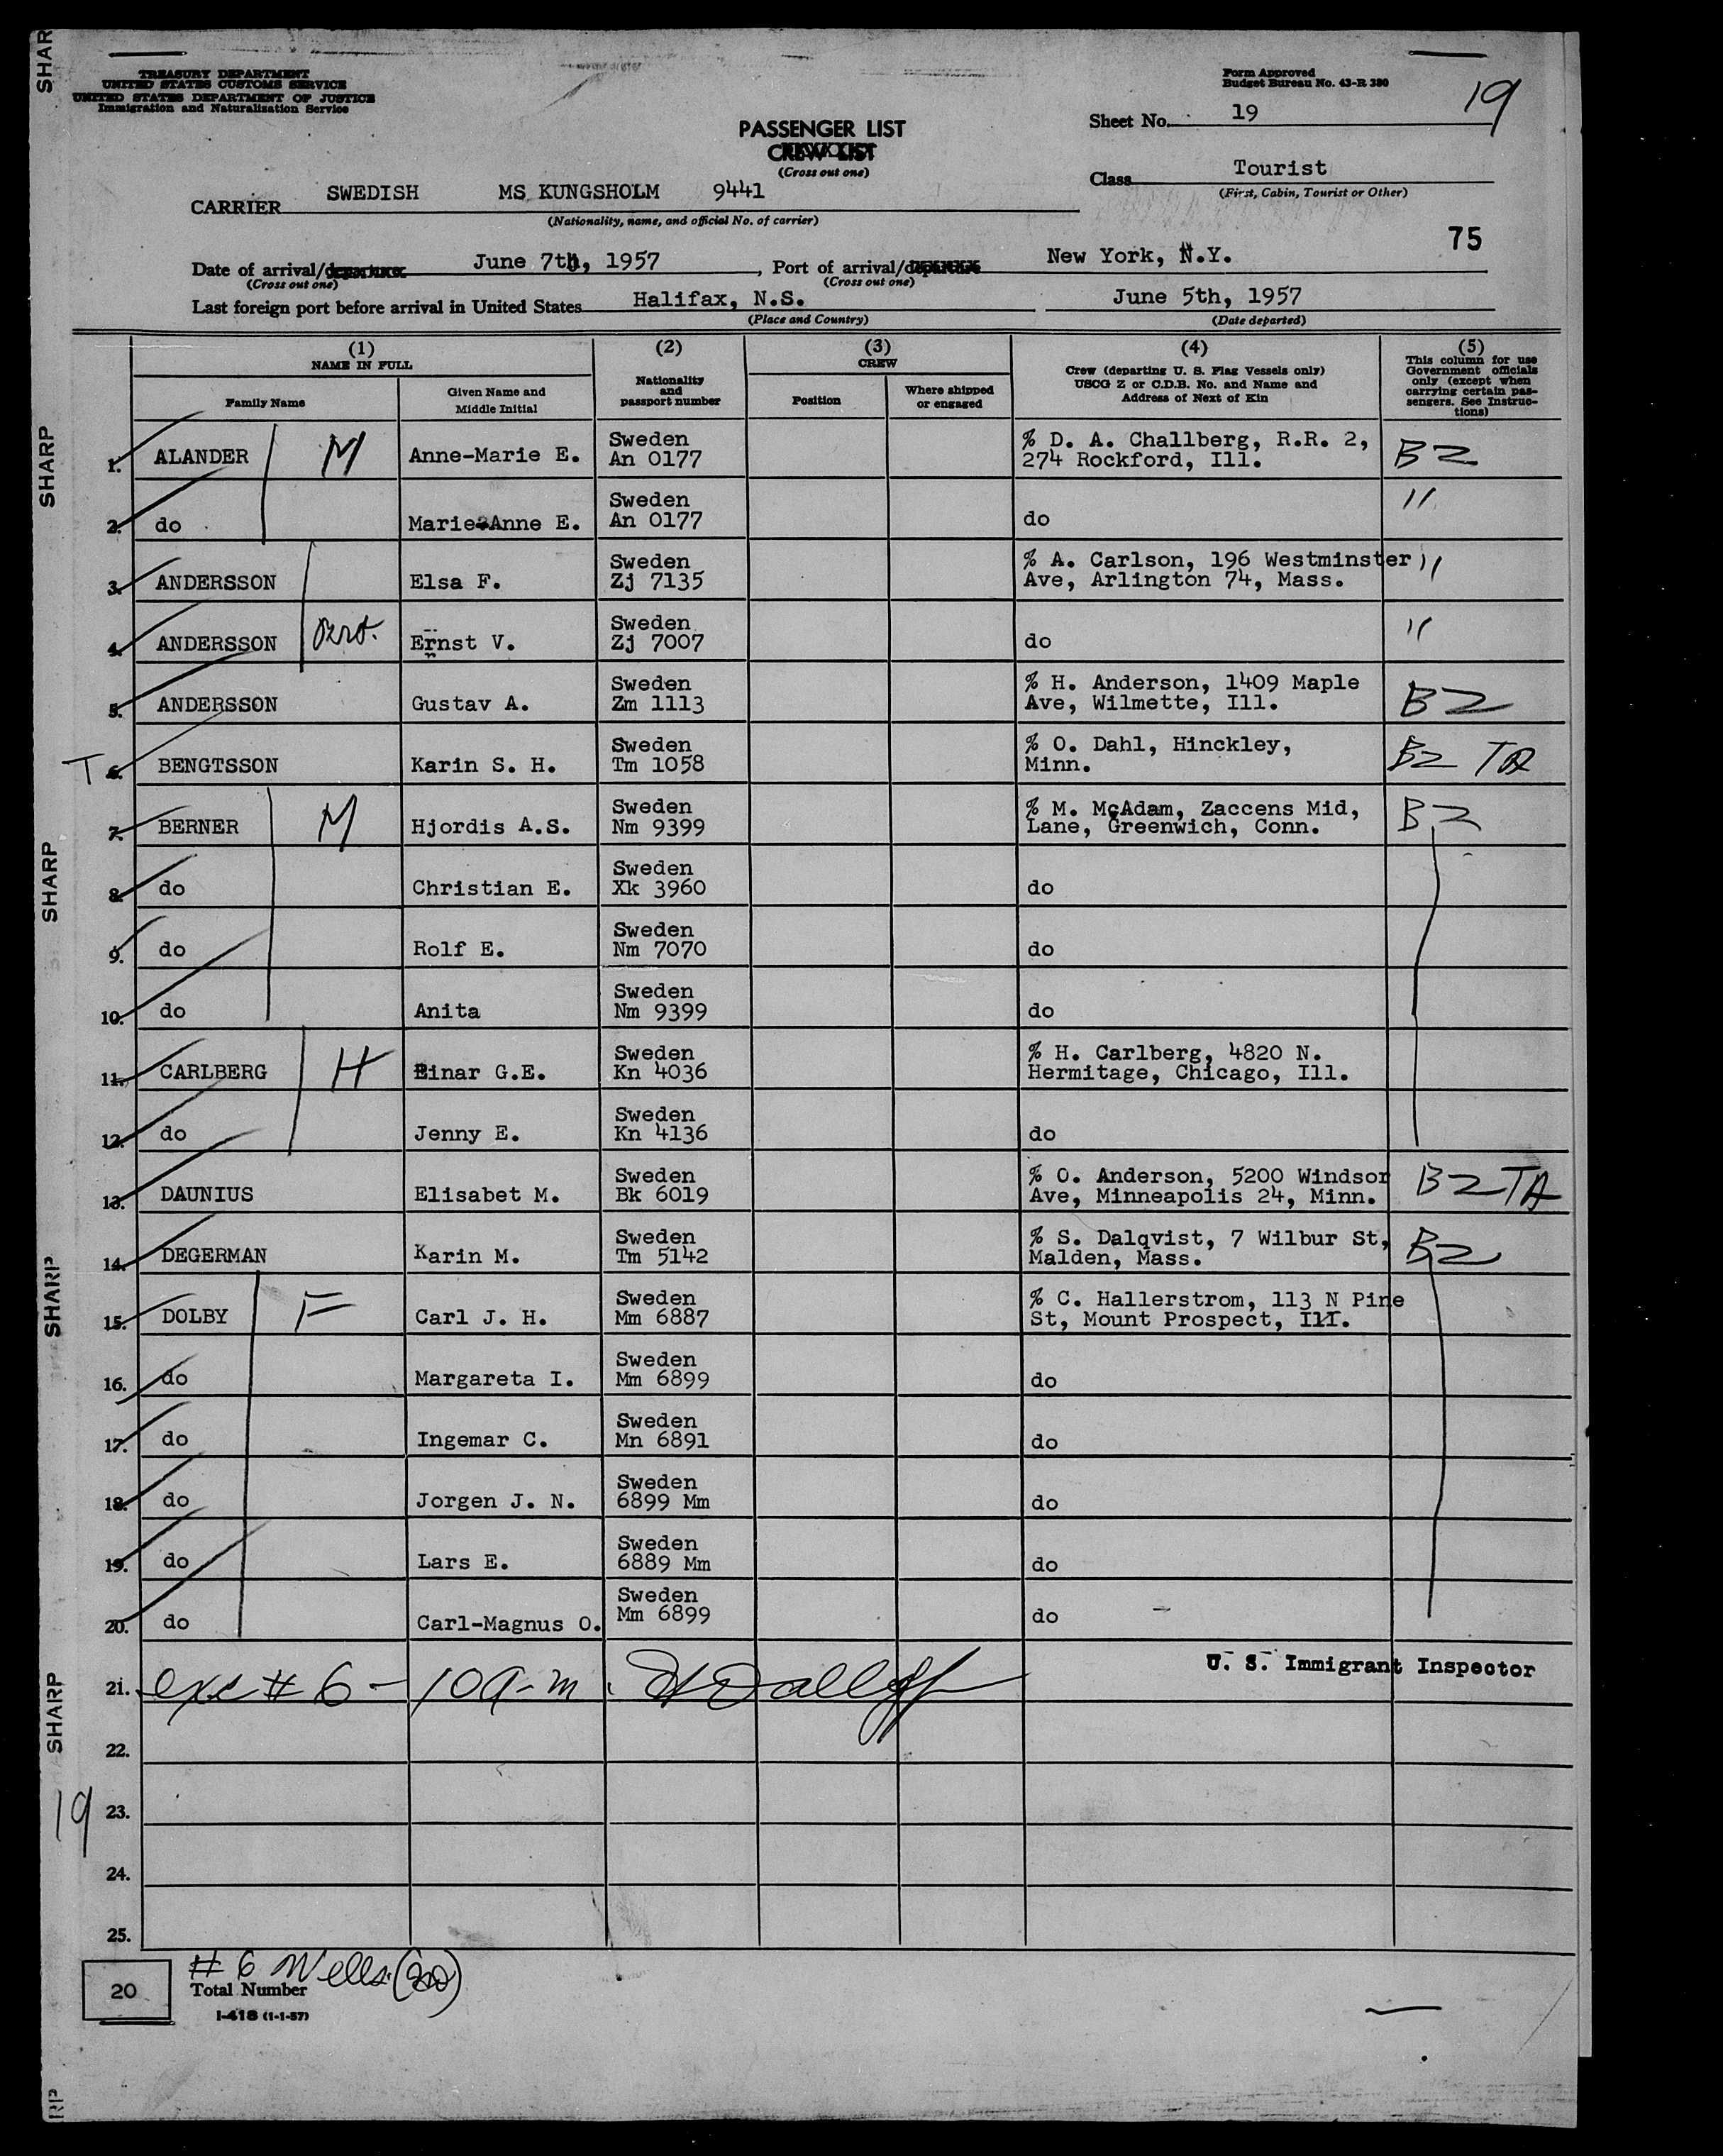 TREASURY DEPARTMENT
UNITED STATES CUSTOMS SERVICE
UNITED STATES DEPARTMENT OF JUSTICE
Immigration and Naturalization Service
Form Approved
Budget Bureau No. 43-R 380
19
Sheet No. 19
PASSENGER LIST
CREW LIST
(Cross out one)
Class Tourist
(First, Cabin, Tourist or Other)
CARRIER SWEDISH MS KUNGSHOLM 9441
(Nationality, name, and official No. of carrier)
75
Date of arrival/departure June 7th, 1957, Port of arrival/departure New York, N.Y.
(Cross out one) (Cross out one)
Last foreign port before arrival in United States Halifax, N.S. June 5th, 1957
(Place and Country) (Date departed)
(1) NAME IN FULL
Family Name
Given Name and Middle Initial
(2) Nationality and passport number
(3) CREW
Position
Where shipped or engaged
(4) Crew (departing U. S. Flag Vessels only) USCG Z or C.D.B. No. and Name and Address of Next of Kin
(5) This column for use Government officials only (except when carrying certain passengers. See Instructions)
1. ALANDER M Anne-Marie E. Sweden An 0177 % D. A. Challberg, R.R. 2, 274 Rockford, Ill. B2
2. do Marie-Anne E. Sweden An 0177 do "
3. ANDERSSON Elsa F. Sweden Zj 7135 % A. Carlson, 196 Westminster Ave, Arlington 74, Mass. "
4. ANDERSSON Ernst V. Sweden Zj 7007 do "
5. ANDERSSON Gustav A. Sweden Zm 1113 % H. Anderson, 1409 Maple Ave, Wilmette, Ill. B2
T 6. BENGTSSON Karin S. H. Sweden Tm 1058 % O. Dahl, Hinckley, Minn. B2 TA
7. BERNER M Hjordis A.S. Sweden Nm 9399 % M. McAdam, Zaccens Mid, Lane, Greenwich, Conn. B2
8. do Christian E. Sweden Xk 3960 do
9. do Rolf E. Sweden Nm 7070 do
10. do Anita Sweden Nm 9399 do
11. CARLBERG H Einar G.E. Sweden Kn 4036 % H. Carlberg, 4820 N. Hermitage, Chicago, Ill.
12. do Jenny E. Sweden Kn 4136 do
13. DAUNIUS Elisabet M. Sweden Bk 6019 % O. Anderson, 5200 Windsor Ave, Minneapolis 24, Minn. B2 TA
14. DEGERMAN Karin M. Sweden Tm 5142 % S. Dalqvist, 7 Wilbur St, Malden, Mass. B2
15. DOLBY F Carl J. H. Sweden Mm 6887 % C. Hallerstrom, 113 N Pine St, Mount Prospect, Ill.
16. do Margareta I. Sweden Mm 6899 do
17. do Ingemar C. Sweden Mn 6891 do
18. do Jorgen J. N. Sweden 6899 Mm do
19. do Lars E. Sweden 6889 Mm do
20. do Carl-Magnus O. Sweden Mm 6899 do
21. exc # 6 - 10 a-m. U. S. Immigrant Inspector
22.
23.
24.
25.
19
# 6 Wells
20 Total Number
I-418 (1-1-57)
SHARP
SHARP
SHARP
SHARP